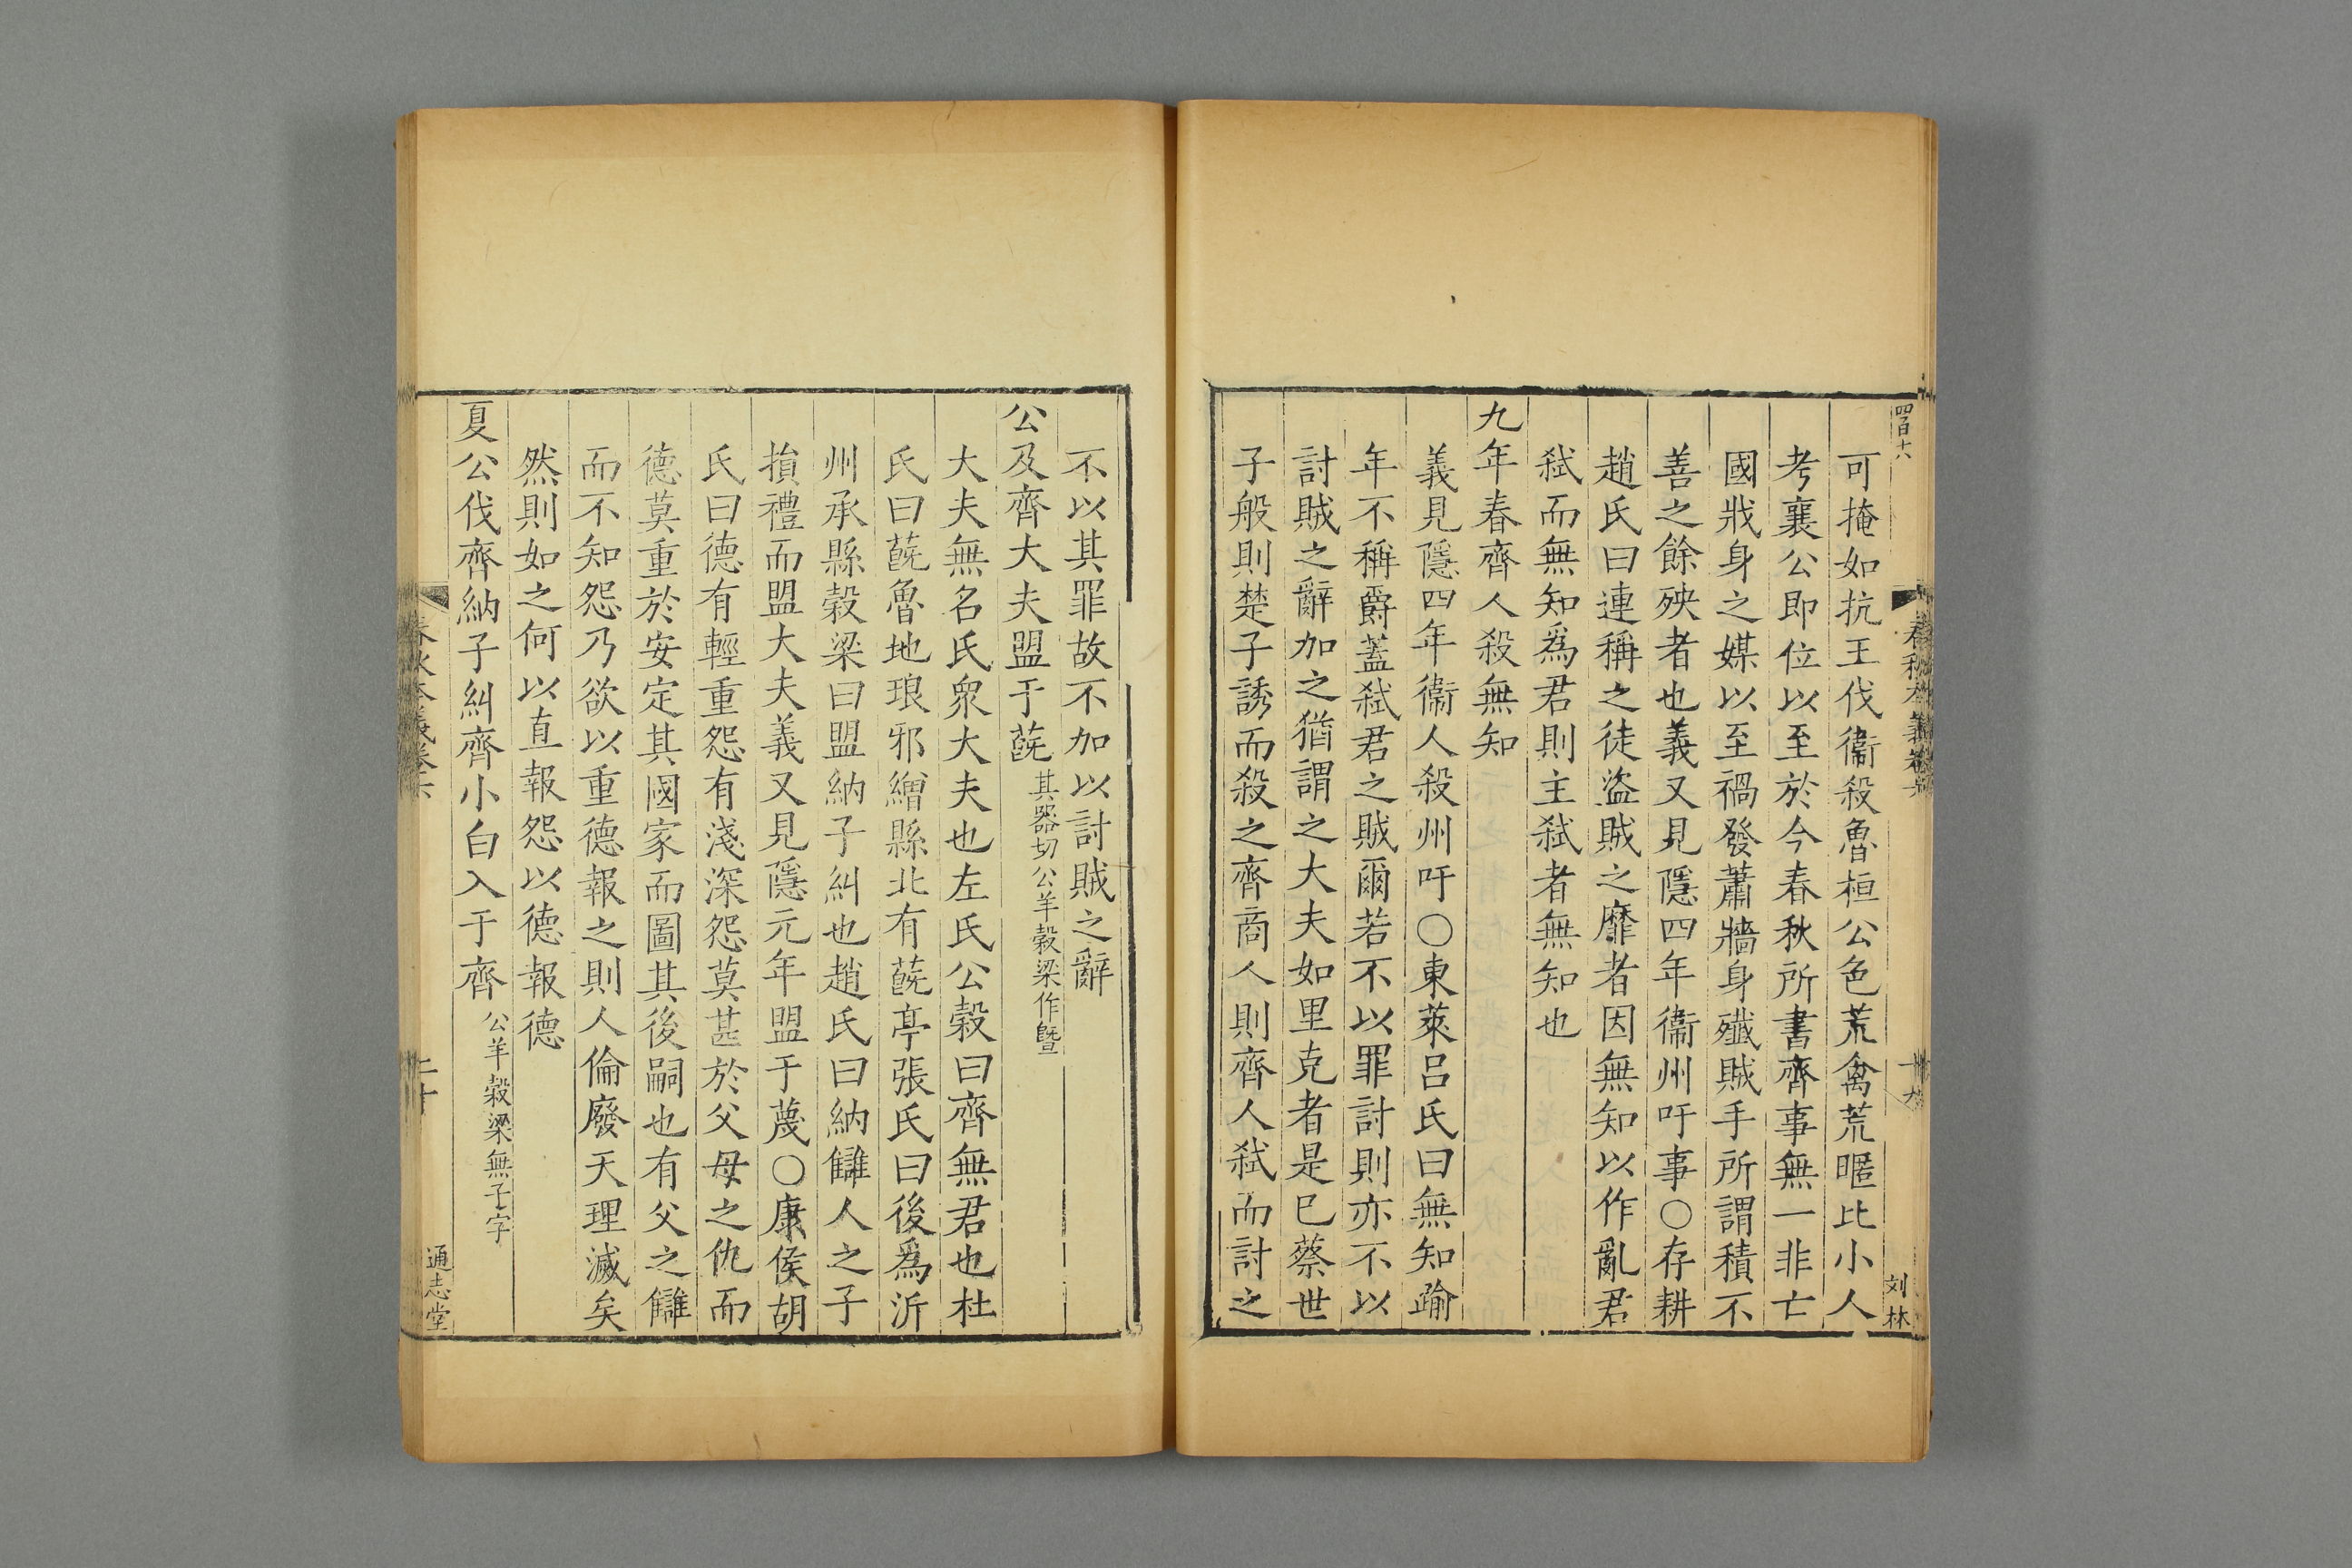 四百十六
春秋本義卷六
十九
刘林
可掩如抗王伐衞殺魯桓公色荒禽荒暱比小人
考襄公即位以至於今春秋所書齊事無一非亡
國戕身之媒以至禍發蕭牆身殲賊手所謂積不
善之餘殃者也義又見隱四年衞州吁事○存耕
趙氏曰連稱之徒盜賊之靡者因無知以作亂君
弒而無知爲君則主弒者無知也
九年春齊人殺無知
義見隱四年衞人殺州吁○東萊呂氏曰無知踰
年不稱爵蓋弒君之賊爾若不以罪討則亦不以
討賊之辭加之猶謂之大夫如里克者是巳蔡世
子般則楚子誘而殺之齊商人則齊人弒而討之
不以其罪故不加以討賊之辭
公及齊大夫盟于蔇其器切公羊穀梁作曁
大夫無名氏衆大夫也左氏公穀曰齊無君也杜
氏曰蔇魯地琅邪繒縣北有蔇亭張氏曰後爲沂
州承縣穀梁曰盟納子糾也趙氏曰納讎人之子
損禮而盟大夫義又見隱元年盟于蔑○康侯胡
氏曰德有輕重怨有淺深怨莫甚於父母之仇而
德莫重於安定其國家而圖其後嗣也有父之讎
而不知怨乃欲以重德報之則人倫廢天理滅矣
然則如之何以直報怨以德報德
夏公伐齊納子糾齊小白入于齊公羊穀梁無子字
春秋本義卷六
二十
通志堂